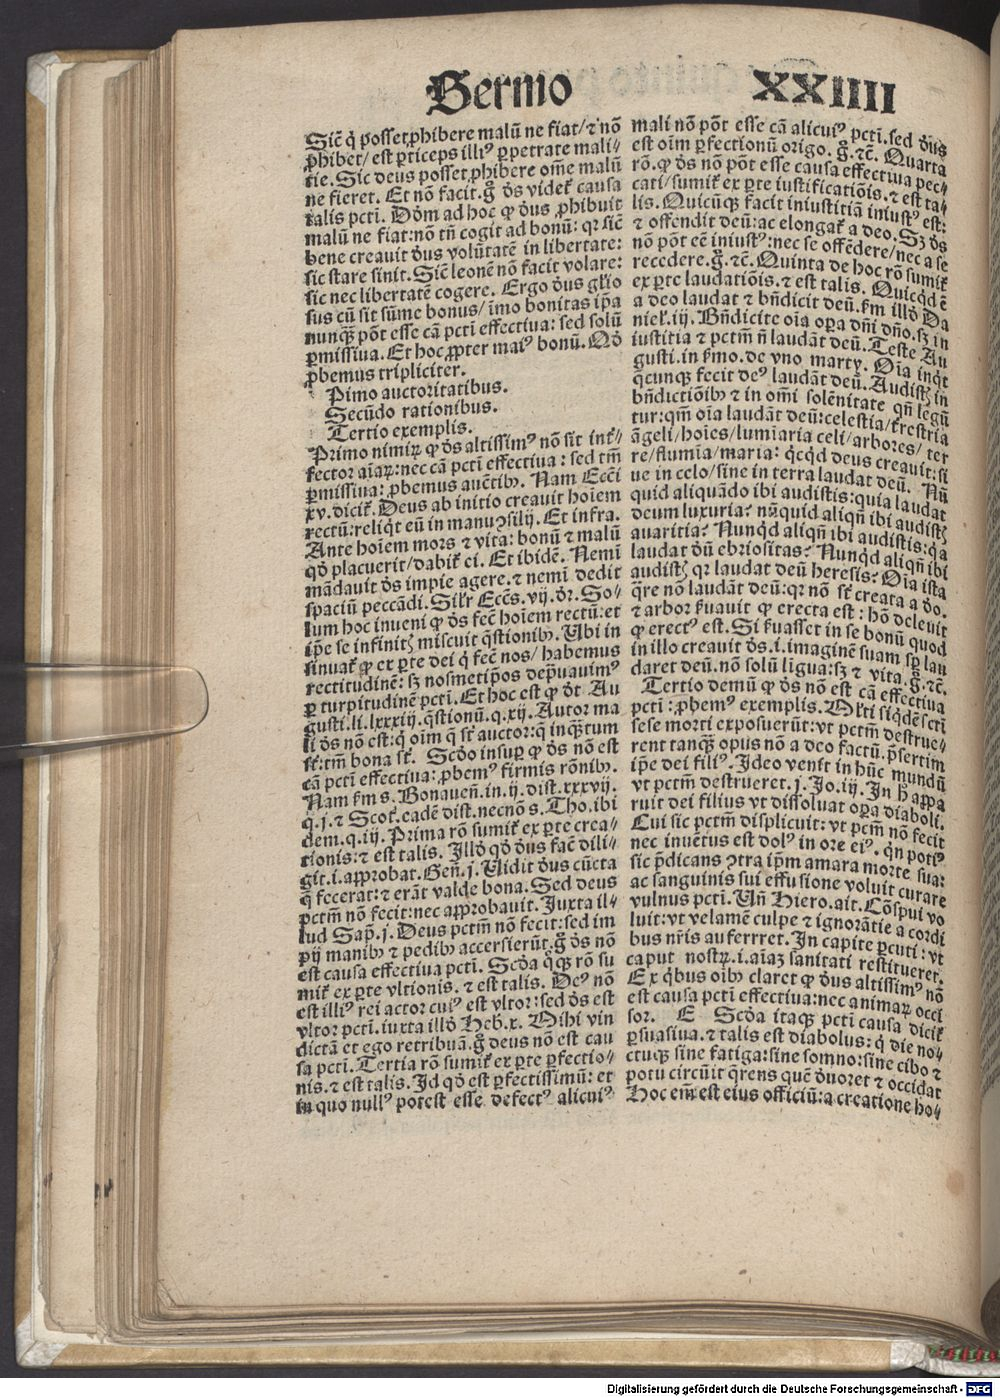 Sermo XXIIII
Sicẽ q̃ posset ꝓhibere malũ ne fiat/ ⁊ nõ
ꝓhibet/ est ꝑticeps illiꝰ ꝑpetrate mali⸗
tie. Sic deus posset ꝓhibere om̃e malũ
ne fieret. Et nõ facit. g̊ ds̃ videt᷑ causa
talis pctĩ. Dõm ad hoc ꝙ dñs ꝓhibuit
malũ ne fiat: nõ tñ cogit ad bonũ: qꝛ sicẽ
bene creauit dñs volũtatẽ in libertate:
sic stare sinit. Sicẽ leonẽ nõ facit volare:
sic nec libertatẽ cogere. Ergo dñs gl̃io
sus cũ sit sũme bonus/ ĩmo bonitas ip̃a
nunqͣ̃ põt esse cã pctĩ effectiua: sed solũ
ꝑmissiua. Et hoc ꝓpter maiꝰ bonũ. Qđ
ꝓbemus tripliciter.
Pimo auctoritatibus.
Secũdo rationibus.
Tertio exemplis.
Primo nimiꝝ ꝙ ds̃ altissimꝰ nõ sit int᷑⸗
fector aĩaꝝ: nec cã pctĩ effectiua: sed tm̃
ꝑmissiua: ꝓbemus auctĩbꝫ. Nam Ecc̃i
xv. dicit᷑. Deus ab initio creauit hoiem
rectũ: reliq̃t eũ in manu ꝯsilij. Et infra.
Ante hoĩem mors ⁊ vita: bonũ ⁊ malũ
qđ placuerit/ dabit᷑ ei. Et ibidẽ. Nemĩ
mãdauit ds̃ impie agere. ⁊ nemĩ dedit
spaciũ peccãdi. Sil̃r Ecc̃s. vij. dr̃. So⸗
lum hoc inueni ꝙ ds̃ fec̃ hoĩem rectũ: et
ip̃e se infinitꝭ miscuit q̃stionibꝫ. Ubi in
sinuat᷑ ꝙ ex ꝑte dei q̃ fec̃ nos/ habemus
rectitudinẽ: sꝫ nosmetip̃os dep̃uauimꝰ
ꝑ turpitudinẽ pctĩ. Et hoc est ꝙ dt̃ Au
gusti. li. lxxxiij. q̃stionũ. q. xij. Autor ma
li ds̃ nõ est: q̃ oĩm q̃ st᷑ auctor: q̃ inq̃ꝫtum
st᷑: tm̃ bona st᷑. Scđo insuꝑ ꝙ ds̃ nõ est
cã pctĩ effectiua: ꝓbemꝰ firmis rõnibꝫ.
Nam ẜm s. Bonaueñ. in. ij. dist. xxxvij.
q. j. ⁊ Scot᷑. eadẽ dist. necnõ s. Tho. ibi
dem. q. ij. Prima rõ sumit᷑ ex ꝑte crea⸗
tionis: ⁊ est talis. Illđ qđ dñs fac̃ dili⸗
git. i. approbat. Geñ. j. Uidit dñs cũcta
q̃ fecerat: ⁊ erãt valde bona. Sed deus
pctm̃ nõ fecit: nec approbauit. Juxta il⸗
lud Sap̃. j. Deus pctm̃ nõ fecit: sed im
pij manibꝫ ⁊ pedibꝫ accersierũt. g̊ ds̃ nõ
est causa effectiua pctĩ. Scđa q̃qꝫ rõ su
mit᷑ ex ꝑte vltionis. ⁊ est talis. Deꝰ nõ
est illiꝰ rei actor cuiꝰ est vltor: sed ds̃ est
vltor pctĩ. iuxta illđ Heb. x. Mihi vin
dictã et ego retribuã. g̊ deus nõ est cau
sa pctĩ. Tertia rõ sumit᷑ ex ꝑte ꝑfectio⸗
nis. ⁊ est talis. Id qđ est ꝑfectissimũ: et
in quo nullꝰ potest esse defectꝰ alicuiꝰ
mali nõ põt esse cã alicuiꝰ pctĩ. sed dñs
est oĩm ꝑfectionũ origo. g̊. ⁊c̃. Quarta
rõ. ꝙ ds̃ nõ põt esse causa effectiua pec⸗
cati/ sumit᷑ ex ꝑte iustificatiõis. ⁊ est ta⸗
lis. Quicũqꝫ facit iniustitiã iniustꝰ est:
⁊ offendit deũ: ac elongat᷑ a deo. Sꝫ ds̃
nõ põt eẽ iniustꝰ: nec se offẽdere/ nec a se
recedere. g̊. ⁊c̃. Quinta de hoc rõ sumit᷑
ex ꝑte laudatiõis. ⁊ est talis. Quicqd ẽ
a deo laudat ⁊ bñdicit deũ. ẜm illđ Da
niel. iij. Bñdicite oĩa oꝑa dñi dño. sꝫ in
iustitia ⁊ pctm̃ ñ laudãt deũ. Teste Au
gusti. in ẜmo. de vno marty. Oĩa inq̃t
q̃cunqꝫ fecit deꝰ laudãt deũ. Audistꝭ in
bñdictiõibꝫ ⁊ in om̃i solẽnitate qñ legũ
tur: qm̃ oĩa laudãt deũ: celestia/ t᷑restria
ãgeli/ hoĩes/ lumĩaria celi/ arbores/ ter
re/ flumĩa/ maria: q̃cqd deus creauit: si
ue in celo/ siue in terra laudat deũ. Nũ
quid aliquãdo ibi audistis: quia laudat
deum luxuria? nũquid aliqñ ibi audistꝭ
auaritia? Nunqd aliqñ ibi audistis: q̃a
laudat dñ ebriositas? Nunqd aliqñ ibi
audistꝭ qꝛ laudat deũ heresis? Oĩa ista
q̃re nõ laudãt deũ: qꝛ nõ st᷑ creata a do.
⁊ arbor ẜuauit ꝙ erecta est: hõ deleuit
ꝙ erectꝰ est. Si ẜuasset in se bonũ quod
in illo creauit ds̃. i. imaginẽ suam sp̃ lau
daret deũ. nõ solũ ligua: sꝫ ⁊ vita. g̊. ⁊c̃.
Tertio demũ ꝙ ds̃ nõ est cã effectiua
pctĩ: ꝓbemꝰ exemplis. Ml̃ti siq̃dẽ sctĩ
sese morti exposuerũt: vt pctm̃ destrue⸗
rent tanqͣ̃ opus nõ a deo factũ. p̃sertim
ip̃e dei filiꝰ. Ideo venit in hũc mundũ
vt pctm̃ destrueret. j. Jo. iij. In h̃ appa
ruit dei filius vt dissoluat oꝑa diaboli.
Cui sic pctm̃ displicuit: vt pctm̃ nõ fecit
nec inuẽtus est dolꝰ in ore eiꝰ. qn̄ potiꝰ
sic p̃dicans ꝯtra ip̃m amara morte sua:
ac sanguinis sui effusione voluit curare
vulnus pctĩ. Uñ Hiero. ait. Cõspui vo
luit: vt velamẽ culpe ⁊ ignorãtie a cordi
bus nr̃is auferrret. In capite ꝑcuti: vt
caput nostꝝ. i. aĩaꝫ sanitati restitueret.
Ex q̃bus oĩbꝫ claret ꝙ dñs altissimꝰ nõ
est causa pctĩ effectiua: nec animaꝝ occi
sor. E Scđa itaqꝫ pctĩ causa dicit᷑
ꝑsuasiua. ⁊ talis est diabolus: q̃ die no⸗
ctuqꝫ sine fatiga: sine somno: sine cibo ⁊
potu circũit q̃rens quẽ đuoret ⁊ occidat
Hoc em̃ est eius officiũ: a creatione ho⸗
Digitalisierung gefördert durch die Deutsche Forschungsgemeinschaft - DFG